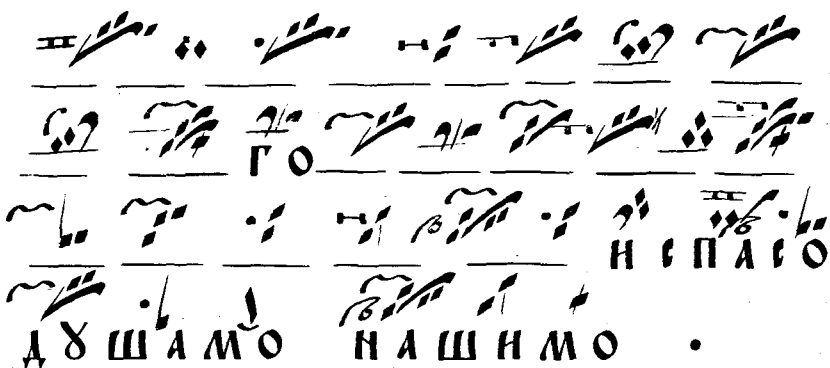 ГО
Н СПАСО
ДꙊШАМО НАШИМО .